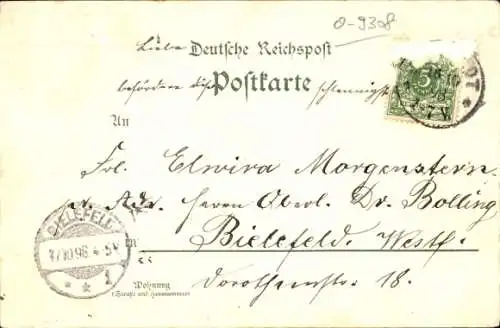 0-9308
Liebe Deutsche Reichspost
befördere diese Postkarte schleunigst
An
Frl. Elwira Morgenstern
p. Adr. Herrn Oberl. Dr. Bolling
in Bielefeld. Westf.
Dorotheenstr. 18.
Wohnung
(Straße und Hausnummer)
BIELEFELD
17/10.98.4-5V.
* * 1
5